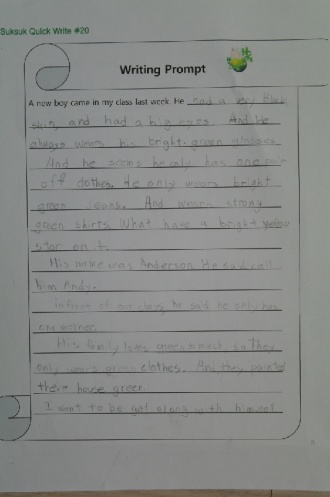 Suksuk Quick Write #20
Writing Prompt
A new boy came in my class last week. He had a very black
skin, and had a big eyes. And he
always wears his bright, green glasses.
And he seems he only has one pair
off clothes. He only wears bright
green jeans. And wears strong
green shirts. What have a bright yellow
star on t.
His name was Anderson. He said call
him Andy.
Infront of our class, he said he only has
one mother.
His family loves green so much, so They
only wears green clothes. And they painted
there house green.
I want to be get along with him